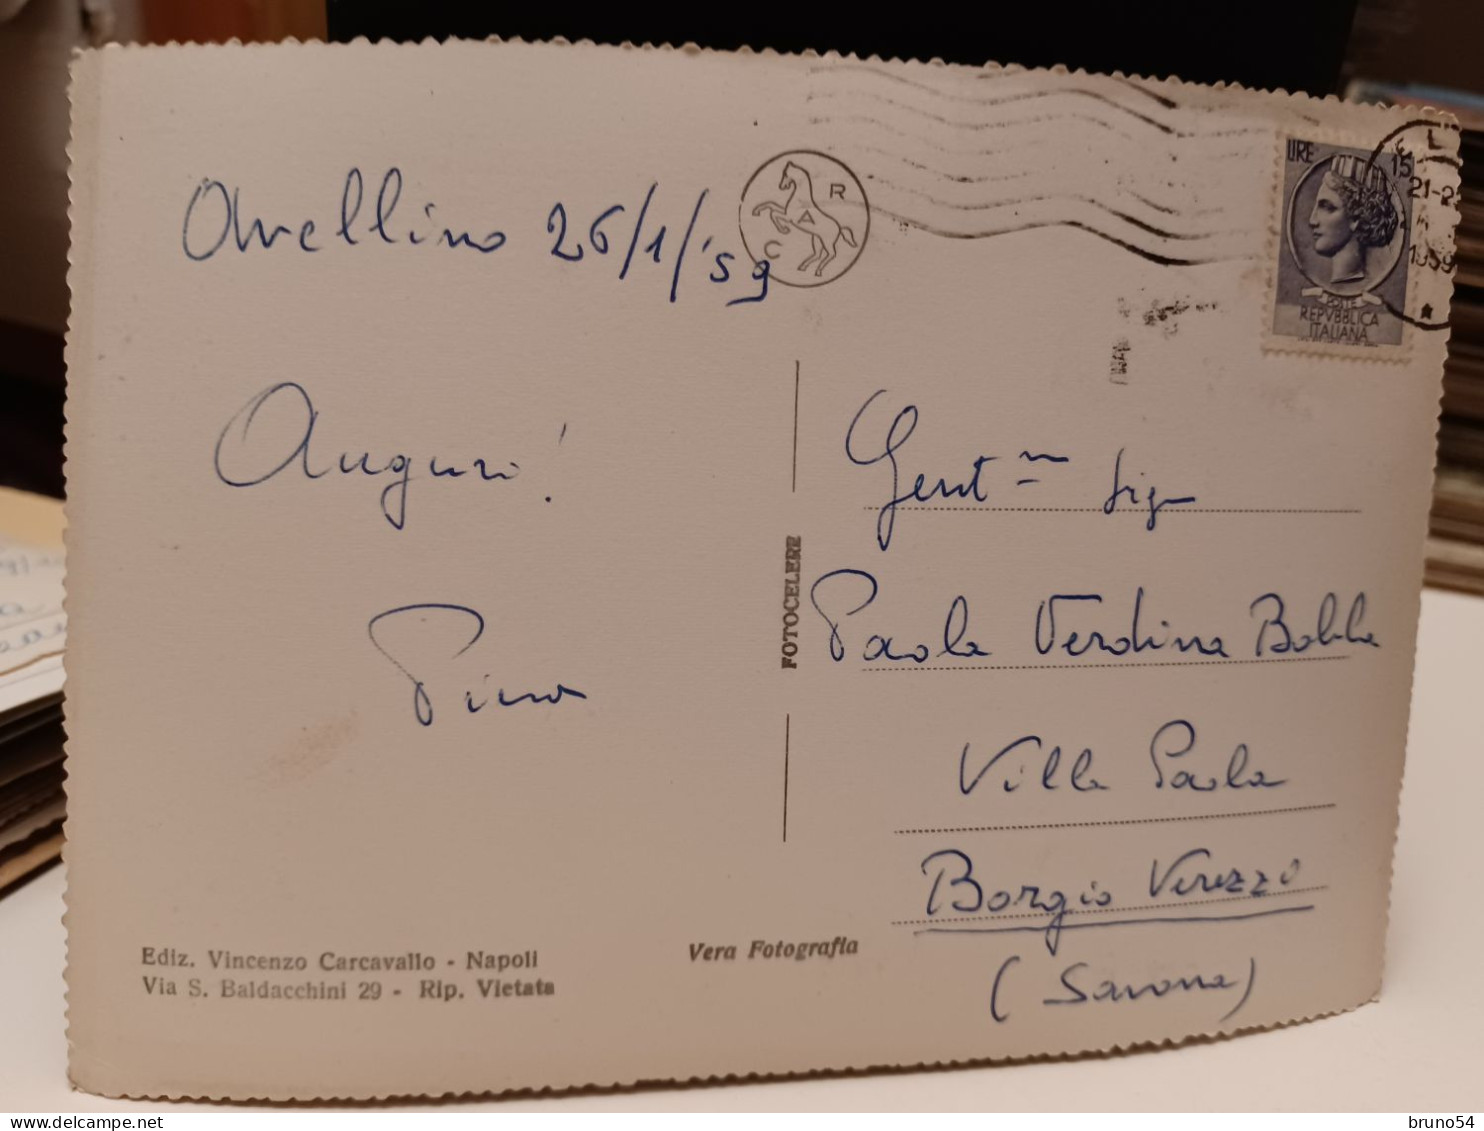 Avellino 26/1/'59
Auguri!
Pino
Ediz. Vincenzo Carcavallo - Napoli
Via S. Baldacchini 29 - Rip. Vietata
C A R
FOTOCELERE
Vera Fotografia
LIRE 15
POSTE
REPVBBLICA
ITALIANA
21-2
1959
Gent.ma Sig.na
Paola Verdina Bolla
Villa Paola
Borgio Verezzo
(Savona)
bruno54